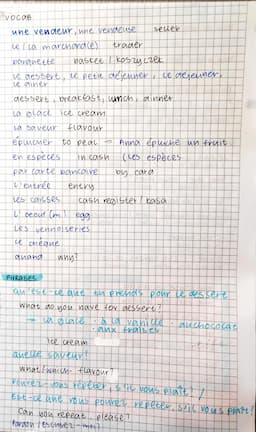 VOCAB
une vendeur, une vendeuse seller
le/la marchand(e) trader
basket / koszyczek
le dessert, le petit déjeuner, le déjeuner,
le dîner
dessert, breakfast, lunch, dinner
la glace ice cream
la saveur flavour
éplucher to peal → Anna épluche un fruit
en espèces in cash (les espèces
par carte bancaire by card
l'entrée entry
les caisses cash register / kasa
l'oeuf (m) egg
les viennoiseries
le chèque
quand
PHRASES
qu'est-ce que tu prends pour le dessert
what do you have for dessert?
→ la glace · à la vanille · au chocolat
· aux fraises
ice cream
quelle saveur?
what/which flavour?
Pouvez-vous répéter, s'il vous plaît? /
Est-ce que vous pouvez répéter, s'il vous plaît?
Can you repeat please?
Pardon / Excusez-moi